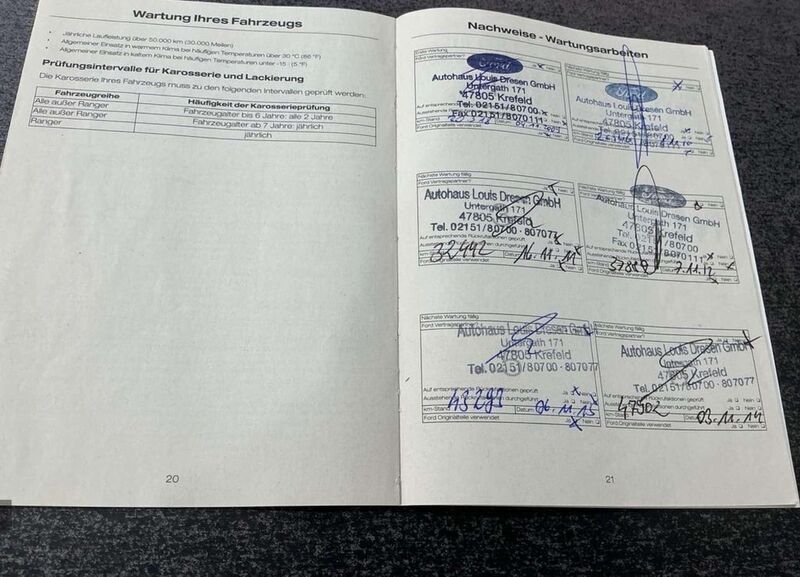 Wartung Ihres Fahrzeugs
• Jährliche Laufleistung über 50.000 km (30.000 Meilen)
• Allgemeiner Einsatz in warmem Klima bei häufigen Temperaturen über 30 °C (86 °F)
• Allgemeiner Einsatz in kaltem Klima bei häufigen Temperaturen unter -15 : (5 °F)
Prüfungsintervalle für Karosserie und Lackierung
Die Karosserie Ihres Fahrzeugs muss zu den folgenden Intervallen geprüft werden:
Fahrzeugreihe Häufigkeit der Karosserieprüfung
Alle außer Ranger Fahrzeugalter bis 6 Jahre: alle 2 Jahre
Alle außer Ranger Fahrzeugalter ab 7 Jahre: jährlich
Ranger jährlich
20
Nachweise - Wartungsarbeiten
Erste Wartung
Ford Vertragspartner
Ford
Autohaus Louis Dresen GmbH
Untergath 171
47805 Krefeld
Tel. 02151/80700
Fax 02151/8070111
km-Stand Datum
Ford Originalteile verwendet Ja Nein
Nächste Wartung fällig
Ford
Autohaus Louis Dresen GmbH
Untergath 171
47805 Krefeld
Nein
Nächste Wartung fällig
Ford Vertragspartner
Autohaus Louis Dresen GmbH
Untergath 171
47805 Krefeld
Tel. 02151/80700 · 807077
Auf entsprechende Rückrufaktionen geprüft
32442 Datum 16.11.11
Ford Originalteile verwendet Ja Nein
Nächste Wartung fällig
Ford Vertragspartner
Ford
Autohaus Louis Dresen GmbH
Untergath 171
47805 Krefeld
Tel. 02151/80700
Fax 02151/8070111
Datum 7.11.12
Ford Originalteile verwendet Ja Nein
Nächste Wartung fällig
Ford Vertragspartner
Autohaus Louis Dresen GmbH
Untergath 171
47805 Krefeld
Tel. 02151/80700 · 807077
Auf entsprechende Rückrufaktionen geprüft Ja Nein
km-Stand 43293 Datum 06.11.13
Ford Originalteile verwendet Ja Nein
Nächste Wartung fällig
Ford Vertragspartner
Autohaus Louis Dresen GmbH
Untergath 171
47805 Krefeld
Tel. 02151/80700 · 807077
Auf entsprechende Rückrufaktionen geprüft Ja Nein
km-Stand 47902 Datum 03.11.14
Ford Originalteile verwendet Ja Nein
21